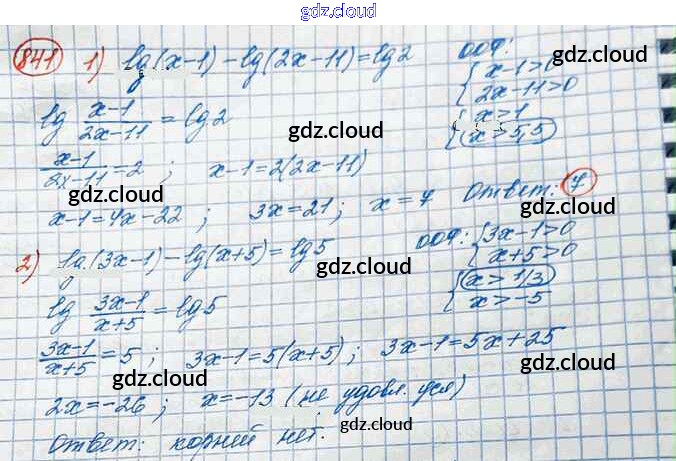 gdz.cloud
841 1) lg(x-1)-lg(2x-11)=lg2
ООФ:
{x-1>0
2x-11>0
{x>1
x>5,5
lg (x-1)/(2x-11) = lg2
(x-1)/(2x-11) = 2 ; x-1=2(2x-11)
x-1=4x-22 ; 3x=21 ; x=7 Ответ: 7
2) lg(3x-1)-lg(x+5)=lg5
ООФ: {3x-1>0
x+5>0
{x>1/3
x>-5
lg (3x-1)/(x+5) = lg5
(3x-1)/(x+5) = 5 ; 3x-1=5(x+5) ; 3x-1=5x+25
2x=-26 ; x=-13 (не удовл. усл)
Ответ: корней нет.
gdz.cloud
gdz.cloud
gdz.cloud
gdz.cloud
gdz.cloud
gdz.cloud
gdz.cloud
gdz.cloud
gdz.cloud
gdz.cloud